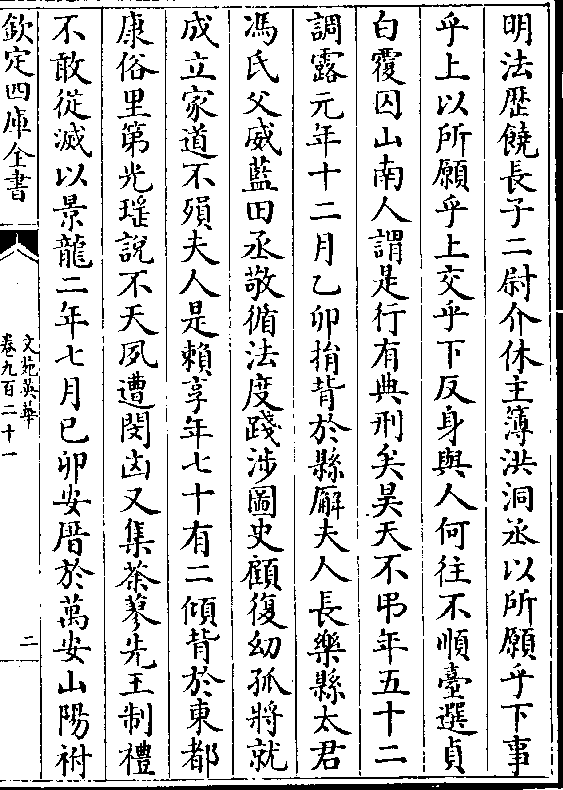 明法歴饒長子二尉介休主簿洪洞丞以所願乎下事
乎上以所願乎上交乎下反身與人何往不順臺選貞
白覆囚山南人謂是行有典刑矣昊天不弔年五十二
調露元年十二月乙卯捐背於縣廨夫人長樂縣太君
馮氏父威藍田丞敬循法度踐涉圖史顧復幼孤將就
成立家道不殞夫人是賴享年七十有二傾背於東都
康俗里第光瑤說不天夙遭閔凶又集荼蓼先王制禮
不敢從滅以景龍二年七月己卯安厝於萬安山陽祔
欽定四庫全書
文苑英華
卷九百二十一
二